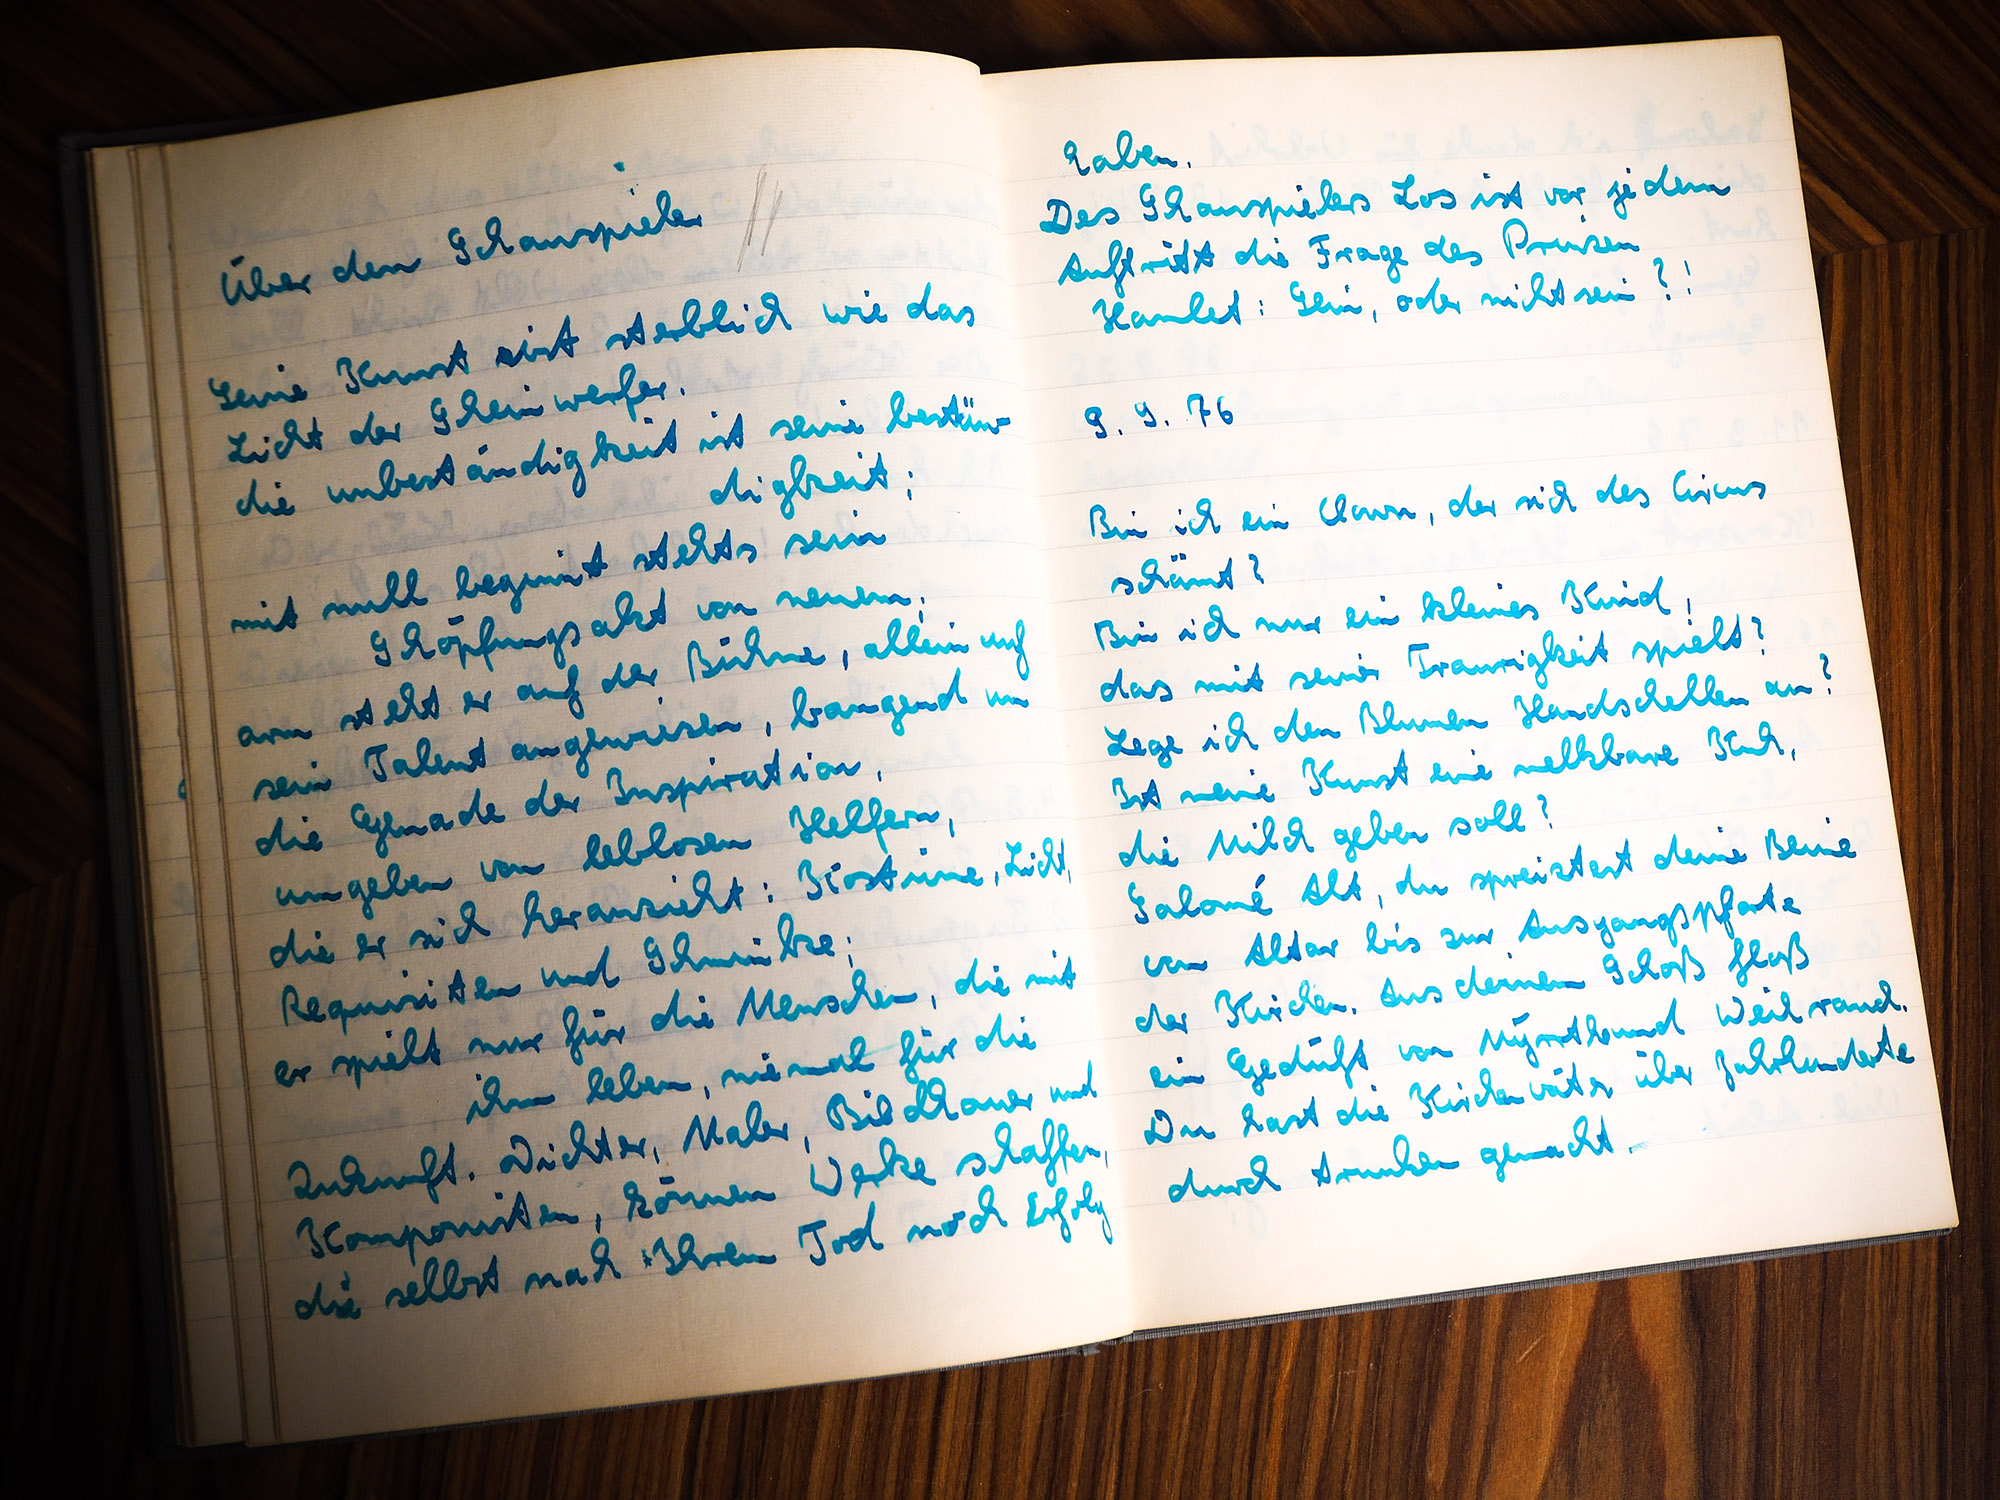 Über den Schauspieler
Seine Kunst ist sterblich wie das
Licht der Scheinwerfer.
die unbeständigkeit ist seine bestän-
digkeit;
mit null beginnt stehts sein
Schöpfungsakt von neuem;
arm steht er auf der Bühne, allein auf
sein Talent angewiesen, bangend um
die Genade der Inspiration,
umgeben von leblosen Helfern,
die er sich heranzieht: Kostüme, Licht,
Requisiten und Schminke;
er spielt nur für die Menschen, die mit
ihm leben, niemals für die
Zukunft. Dichter, Maler, Bildhauer und
Komponisten, können Werke schaffen,
die selbst nach Ihrem Tod noch Erfolg
haben.
Des Schauspielers Los ist vor jedem
Auftritt die Frage des Prinzen
Hamlet: Sein, oder nicht sein?!
9. 9. 76
Bin ich ein Clown, der sich des Circus
schämt?
Bin ich nur ein kleines Kind,
das mit seiner Traurigkeit spielt?
Lege ich den Blumen Handschellen an?
Ist meine Kunst eine melkbare Kuh,
die Milch geben soll?
Salomé Alt, du spreiztest deine Beine
vom Altar bis zur Ausgangspforte
der Kirchen. Aus deinem Schoß floß
ein Gedüft von und Weihrauch.
Du hast die Kirchenväter über Jahrhunderte
durch trunken gemacht.